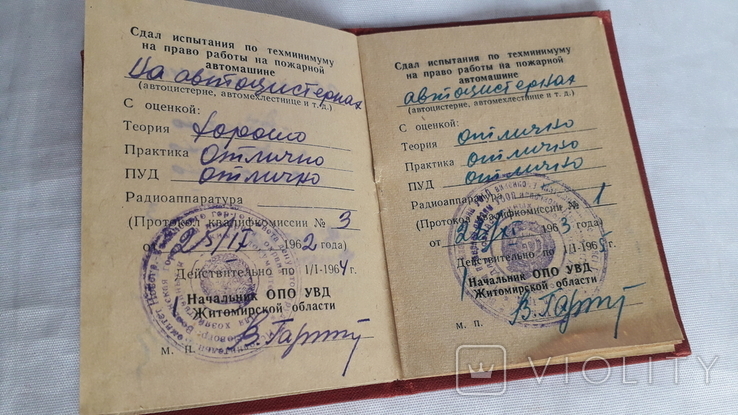 Сдал испытания по техминимуму
на право работы на пожарной
автомашине
На автоцистернах
(автоцистерне, автомехлестнице и т. д.)
С оценкой:
Теория хорошо
Практика Отлично
ПУД Отлично
Радиоаппаратура
(Протокол квалифкомиссии № 3
от 25/IV 1962 года)
Действительно по 1/I-1964 г.
Начальник ОПО УВД
Житомирской области
М. П.
Сдал испытания по техминимуму
на право работы на пожарной
автомашине
автоцистернах
(автоцистерне, автомехлестнице и т. д.)
С оценкой:
Теория отлично
Практика отлично
ПУД отлично
Радиоаппаратура
(Протокол квалифкомиссии № 1
от 1963 г.)
Действительно по 1/I-1965 г.
Начальник ОПО УВД
Житомирской области
М. П.
VIOLITY